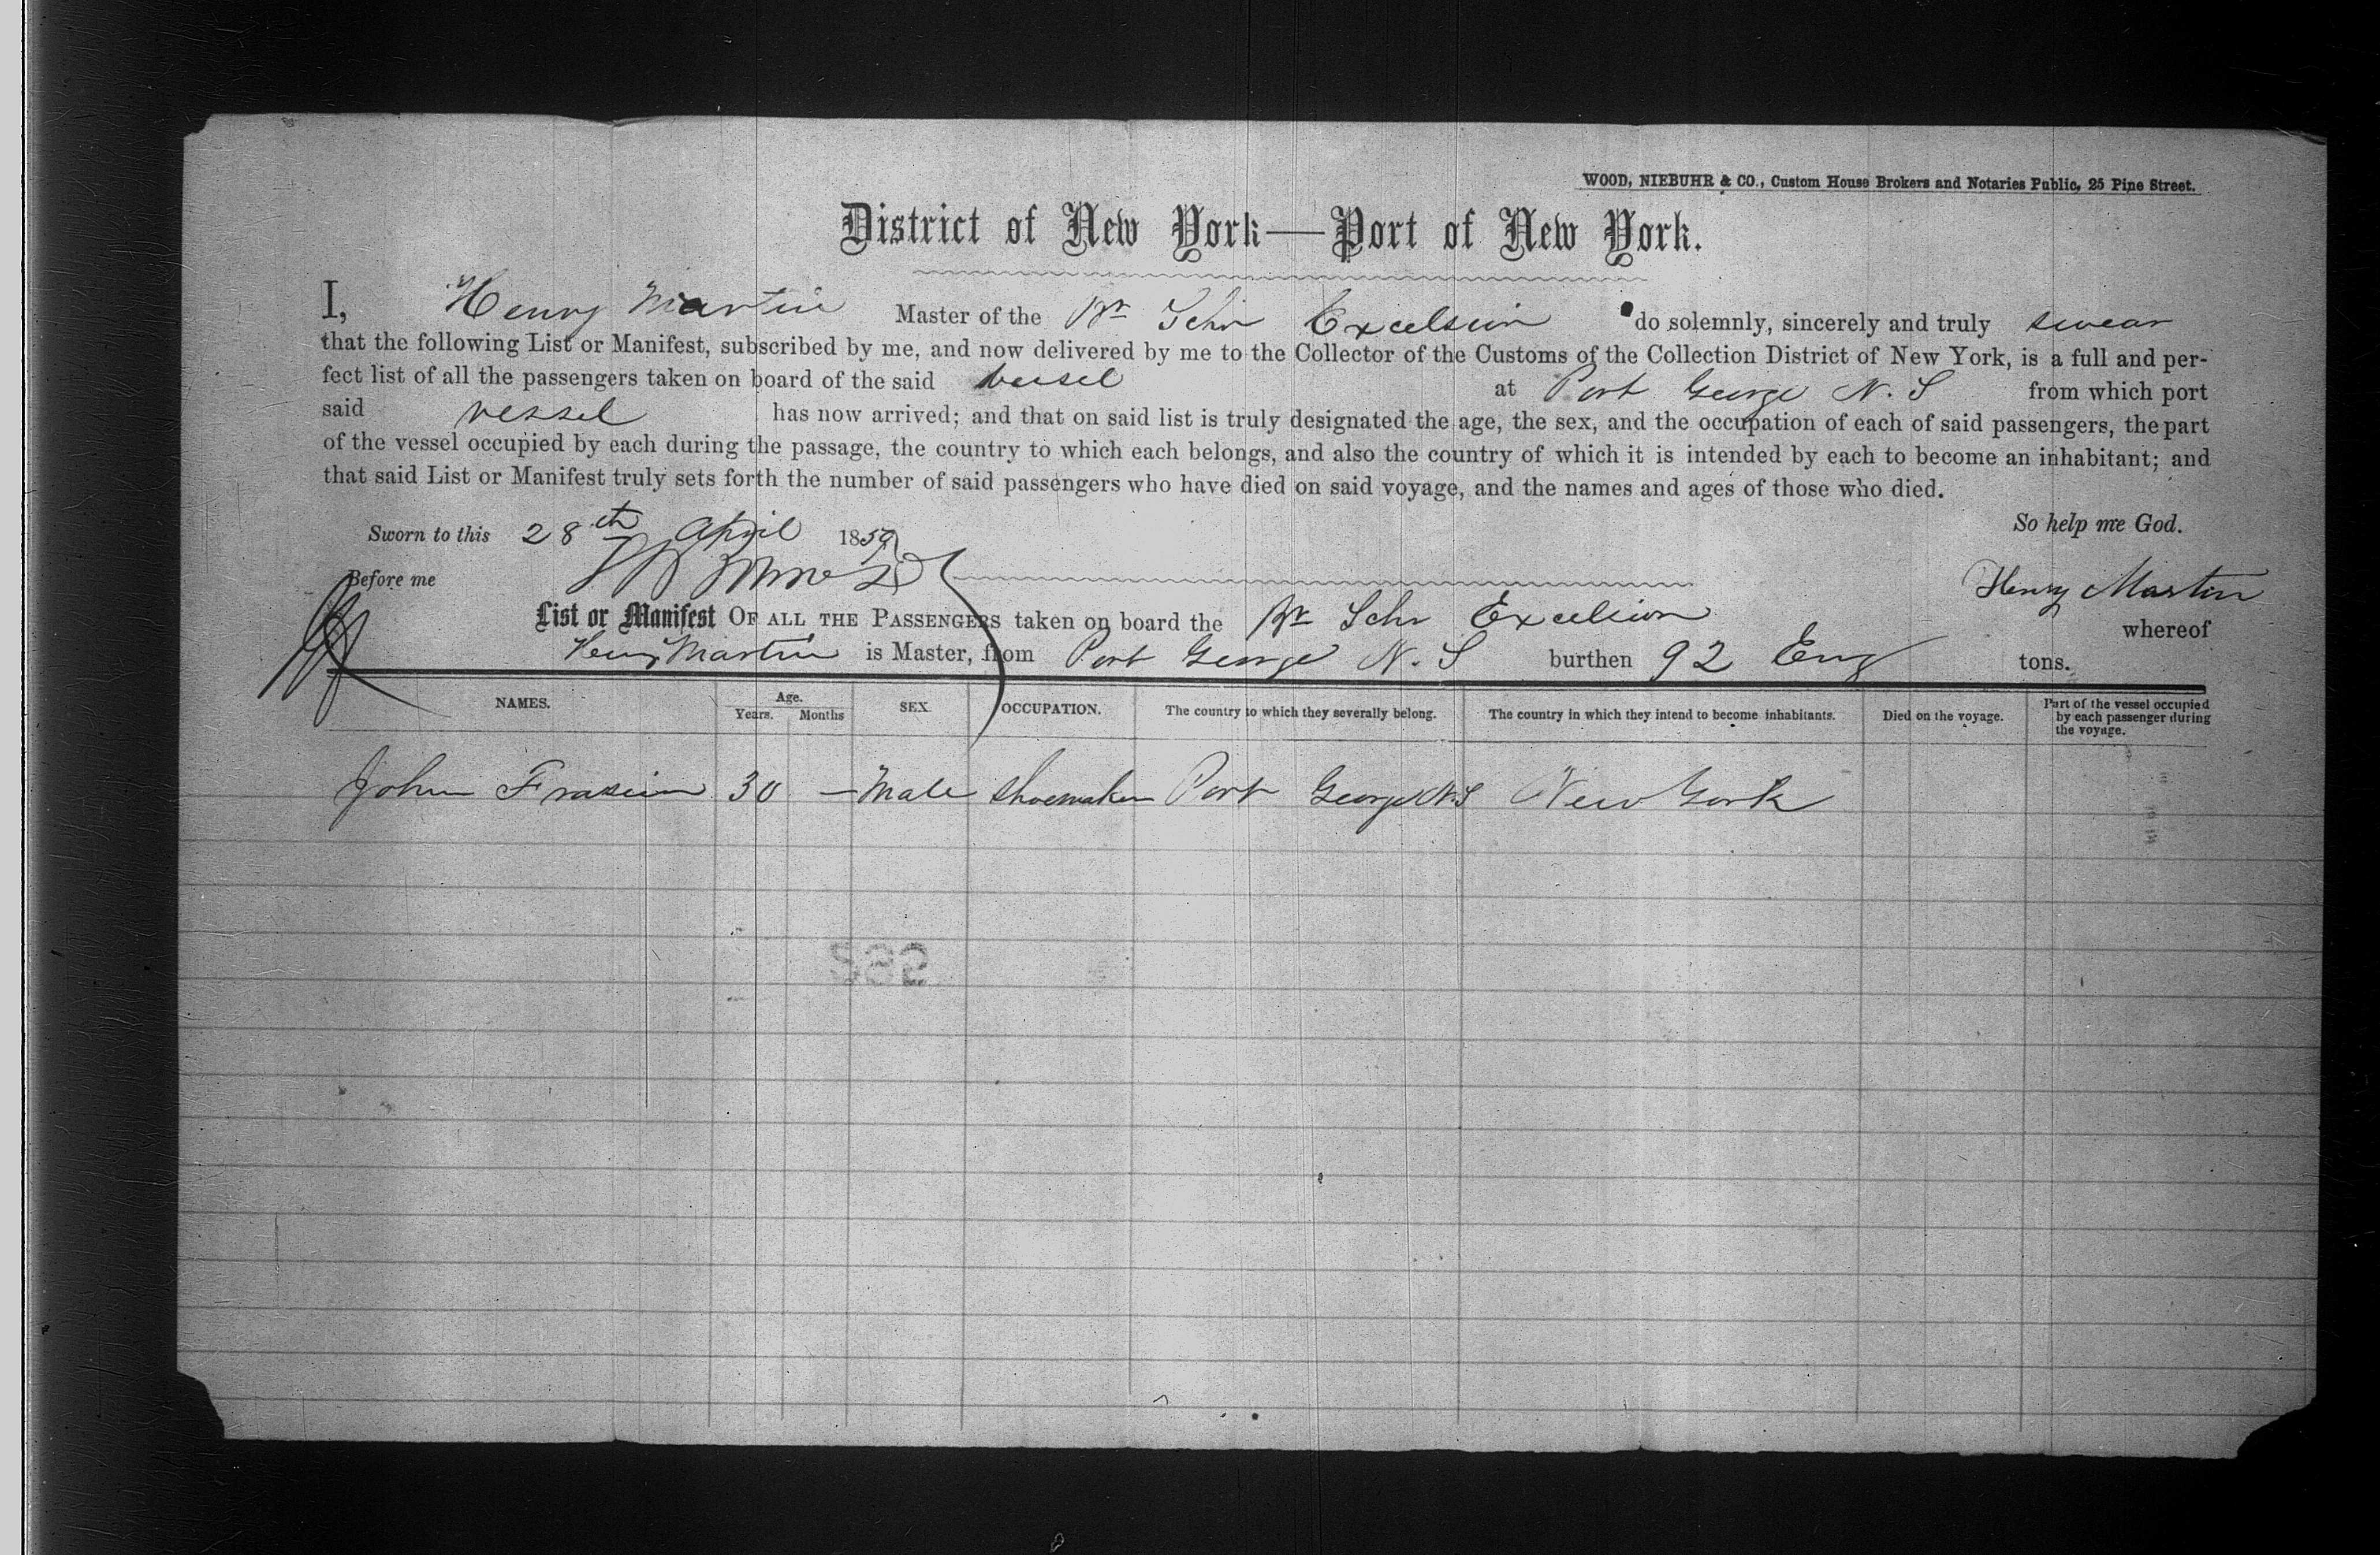 WOOD, NIEBUHR & CO., Custom House Brokers and Notaries Public, 25 Pine Street.
District of New York—Port of New York.
I, Henry Martin Master of the Br Schr Excelsior do solemnly, sincerely and truly swear
that the following List or Manifest, subscribed by me, and now delivered by me to the Collector of the Customs of the Collection District of New York, is a full and per-
fect list of all the passengers taken on board of the said vessel at Port George N. S from which port
said vessel has now arrived; and that on said list is truly designated the age, the sex, and the occupation of each of said passengers, the part
of the vessel occupied by each during the passage, the country to which each belongs, and also the country of which it is intended by each to become an inhabitant; and
that said List or Manifest truly sets forth the number of said passengers who have died on said voyage, and the names and ages of those who died.
So help me God.
Sworn to this 28th April 1859
Before me
Henry Martin
List or Manifest OF ALL THE PASSENGERS taken on board the Br Schr Excelsior whereof
Henry Martin is Master, from Port George N. S burthen 92 Eng tons.
NAMES. Age. Years. Months SEX. OCCUPATION. The country to which they severally belong. The country in which they intend to become inhabitants. Died on the voyage. Part of the vessel occupied by each passenger during the voyage.
John Frasier 30 — Male Shoemaker Port George N.S New York